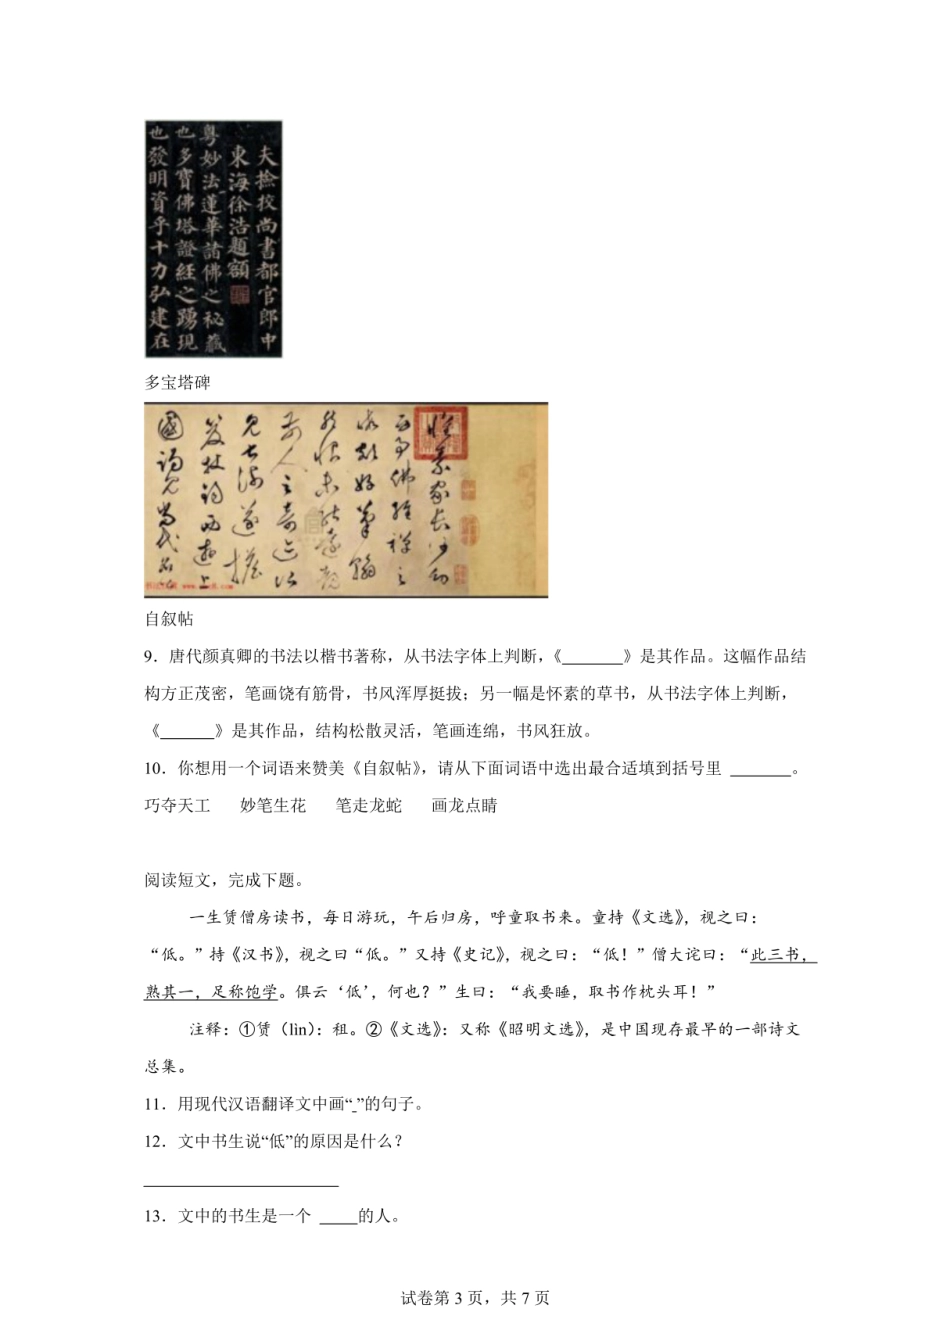 夫撿挍尚書都官郎中
東海徐浩題額
粤妙法蓮華諸佛之秘藏
也多寶佛塔證經之踴現
也發明資乎十力弘建在
多宝塔碑
懷素家長沙幼
而事佛經禪之
暇頗好筆翰
然恨未能遠覩
前人之奇迹所
見甚淺遂擔
笈杖錫西遊上
國謁見當代名
自叙帖
9．唐代颜真卿的书法以楷书著称，从书法字体上判断，《_______》是其作品。这幅作品结
构方正茂密，笔画饶有筋骨，书风浑厚挺拔；另一幅是怀素的草书，从书法字体上判断，
《______》是其作品，结构松散灵活，笔画连绵，书风狂放。
10．你想用一个词语来赞美《自叙帖》，请从下面词语中选出最合适填到括号里 _______。
巧夺天工 妙笔生花 笔走龙蛇 画龙点睛
阅读短文，完成下题。
一生赁僧房读书，每日游玩，午后归房，呼童取书来。童持《文选》，视之曰：
“低。”持《汉书》，视之曰“低。”又持《史记》，视之曰：“低！”僧大诧曰：“此三书，
熟其一，足称饱学。俱云‘低’，何也？”生曰：“我要睡，取书作枕头耳！”
注释：①赁（lìn）：租。②《文选》：又称《昭明文选》，是中国现存最早的一部诗文
总集。
11．用现代汉语翻译文中画“_”的句子。
12．文中书生说“低”的原因是什么？
13．文中的书生是一个 ____的人。
试卷第 3 页，共 7 页